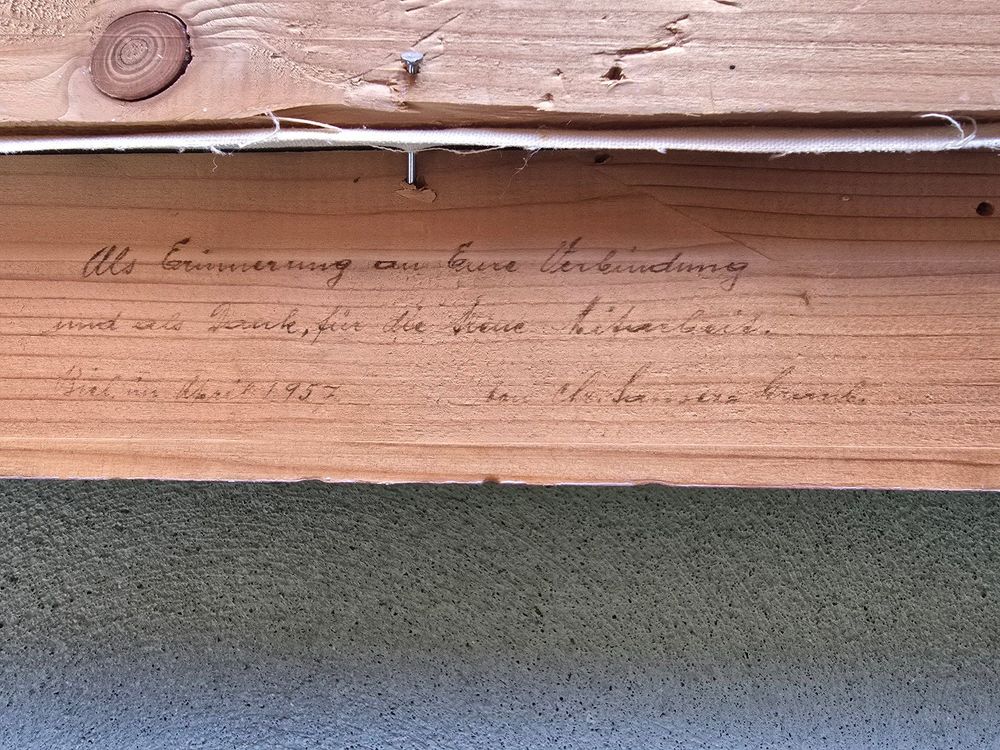 Als Erinnerung an Eure Verbindung
und als Dank, für die treue Mitarbeit.
Biel im April 1957 von Chr.